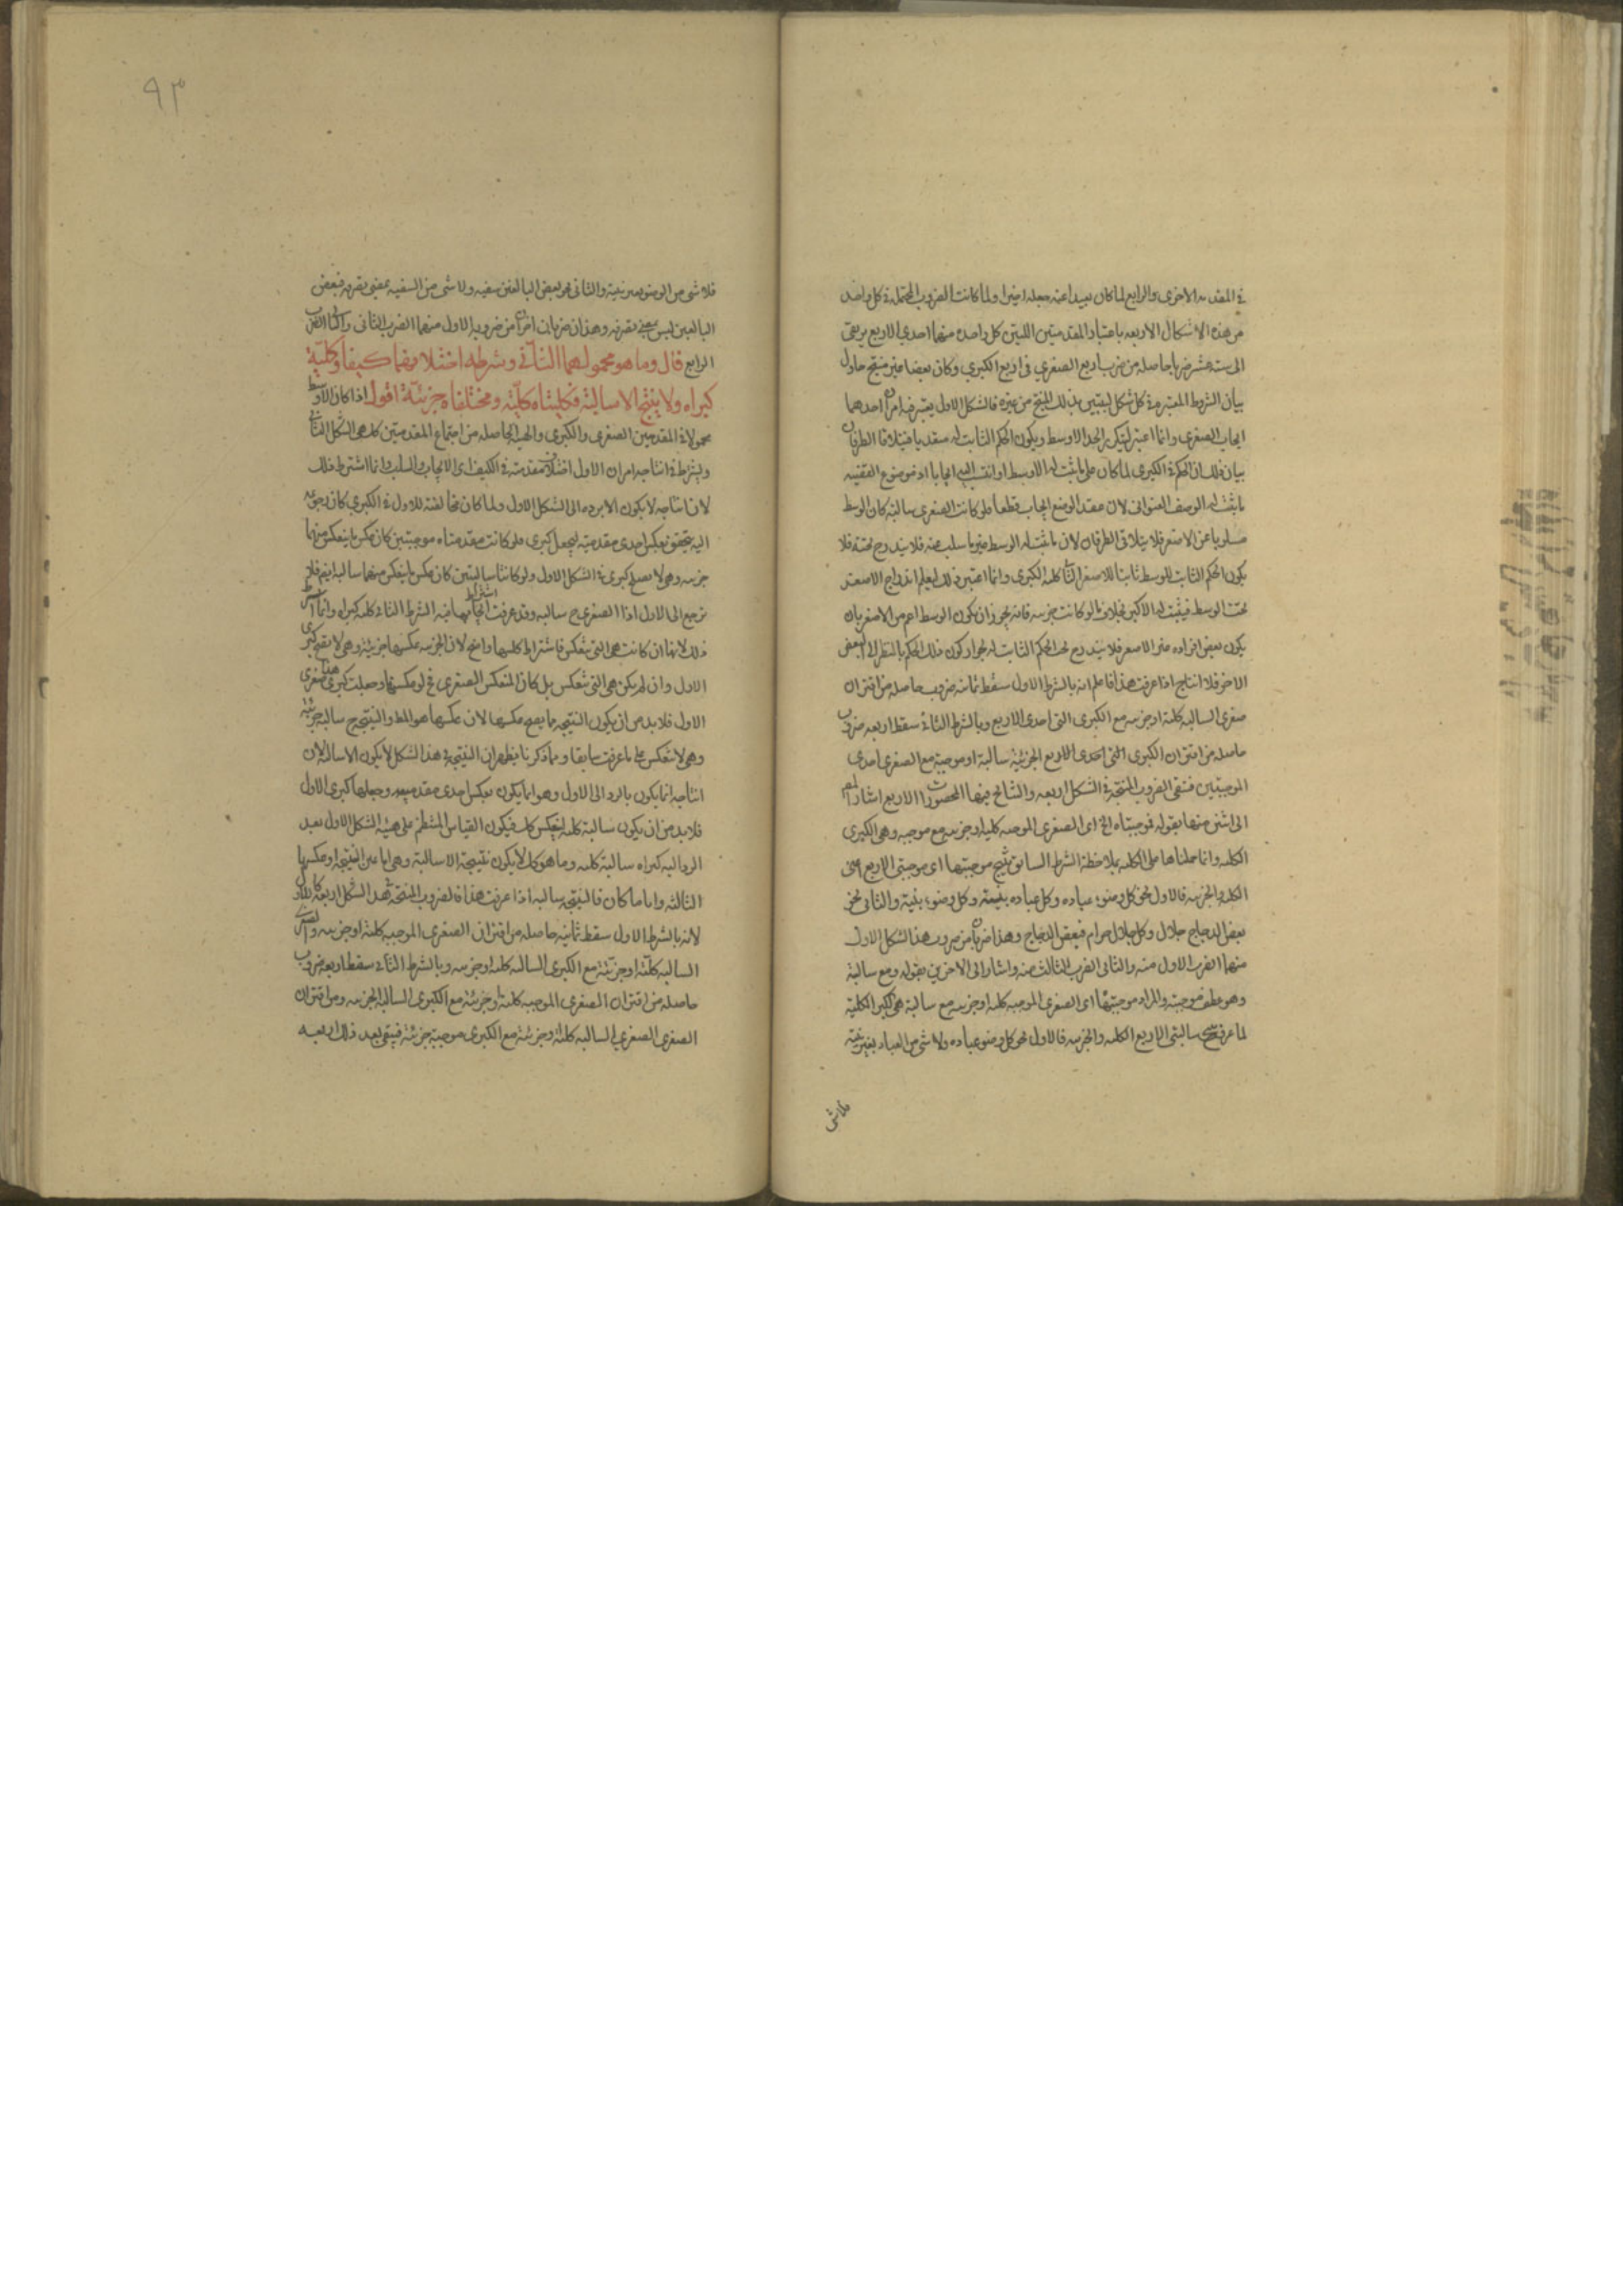 في المقدمة الاخرى والرابع لما كان بعيدا عنه جعله اخيرا ولما كانت الضروب المحتملة في كل واحد
من هذه الاشكال الاربعه باعتبار المقدمتين اللتين كل واحدة منهما احدى الاربع يرتقى
الى ستة عشر ضربا حاصله من ضرب اربع الصغرى فى اربع الكبرى وكان بعضها غير منتج حاول
بيان الشروط المعتبرة في كل شكل ليتبين بذلك المنتج من غيره فالشكل الاول يعتبر فيه امران احدهما
ايجاب الصغرى وانما اعتبر ليتكرر الحد الاوسط ويكون الحكم الثابت له متعديا فيتلاقا الطرفان
بيان ذلك ان الحكم في الكبرى لما كان على ما ثبت له الاوسط او انتسب اليه ايجابا اذ موضوع القضيه
ما يثبت له الوصف العنوانى لان عقد الوضع ايجاب قطعا فلو كانت الصغرى سالبة كان الوسط
مسلوبا عن الاصغر فلا يتلاقى الطرفان لان ما ثبت له الوسط غير ما سلب عنه فلا يندرج تحته فلا
يكون الحكم الثابت للوسط ثابتا للاصغر الثانى كليه الكبرى وانما اعتبر ذلك ليعلم اندراج الاصغر
تحت الوسط فيثبت له الاكبر بخلاف ما لو كانت جزئيه فانه يجوز ان يكون الوسط اعم من الاصغر بان
يكون بعض افراده غير الاصغر فلا يندرج تحت الحكم الثابت له لجواز كون ذلك الحكم بالنظر الى البعض
الاخر فلا انتاج اذا عرفت هذا فاعلم انه بالشرط الاول سقط ثمانيه ضروب حاصله من اقتران
صغرى السالبه كلية او جزئيه مع الكبرى التى احدى الاربع وبالشرط الثانى سقط اربعه ضروب
حاصله من اقتران الكبرى التى احدى الاربع الجزئية سالبة او موجبة مع الصغرى احدى
الموجبتين فتبقى الضروب المنتجة في الشكل اربعه والنتائج فيها المحصورات الاربع اشار المصنف
الى اثنين منها بقوله فموجبتاه الخ اى الصغرى الموجبه كلية او جزئيه مع موجبه وهى الكبرى
الكليه وانما حملناها على الكليه بملاحظة الشرط السابق تنتج موجبتها اى موجبتى الاربع يعنى
الكليه والجزئيه فالاول نحو كل وضوء عباده وكل عباده بنية وكل وضوء بنية والثانى نحو
بعض الدجاج جلال وكل جلال حرام فبعض الدجاج وهذا ضربان من ضروب هذا الشكل الاول
منها الضرب الاول منه والثانى الضرب الثالث منه واشار الى الاخرين بقوله ومع سالبة
وهو عطف موجبته والمراد موجبتها اى الصغرى الموجبه كلية او جزئيه مع سالبة هى الكبرى الكلية
لما عرفت تنتج سالبتى الاربع الكليه والجزئيه فالاول نحو كل وضوء عباده ولا شى من العباد بغير نية
فلا شى
٩٣
فلا شى من الوضوء بغير نية والثانى نحو بعض البالغين سفيه ولا شى من السفيه بمضى تصرفه فبعض
البالغين ليس بمضى تصرفه وهذان ضربان اخران من ضروبه الاول منهما الضرب الثانى والثانى الضرب
الرابع قال وما هو محمولهما الثانى وشرطه اختلافهما كيفا وكلية
كبراه ولا ينتج الا سالبة فكليتاه كلية ومختلفتاه جزئية اقول اذا كان الاوسط
محمولا في المقدمتين الصغرى والكبرى والهيئة الحاصله من اجتماع المقدمتين كذلك هى الشكل الثانى
ويشترط في انتاجه امران الاول اختلاف مقدمتيه فى الكيف اى الايجاب والسلب وانما اشترط ذلك
لان انتاجه لا يكون الا برده الى الشكل الاول ولما كان مخالفته للاول في الكبرى كان رجوعه
اليه يتحقق بعكس احدى مقدمتيه ليجعل كبرى فلو كانت مقدمتاه موجبتين كان عكس ما ينعكس منهما
جزئيه وهى لا تصلح كبرى في الشكل الاول ولو كانتا سالبتين كان عكس ما ينعكس منهما سالبة ايضا فلا
ترجع الى الاول اذ الصغرى ح سالبه وقد عرفت اشتراط ايجابها فيه الشرط الثانى كليه كبراه وانما اشترط
ذلك لانها ان كانت هى التى تنعكس فاشتراط كليتها واضح لان الجزئيه عكسها جزئية وهى لا تقع كبرى
الاول وان لم يكن هى التى تنعكس بل كان المنعكس الصغرى فح لو عكسناها وجعلت كبرى هذا صغرى
الاول فلا بد من ان يكون النتيجه مما يصح عكسها لان عكسها هو المط والنتيجه ح سالبه جزئية
وهى لا تنعكس على ما عرفت سابقا ومما ذكرنا يظهر ان النتيجة في هذا الشكل لا يكون الا سالبة لان
انتاجه انما يكون بالرد الى الاول وهو انما يكون بعكس احدى مقدمتيه وجعلها كبرى الاول
فلا بد من ان يكون سالبة كلية لتنعكس كلية فيكون القياس المنتظم على هيئة الشكل الاول بعد
الرد اليه كبراه سالبة كليه وما هو كك لا يكون نتيجته الا سالبة وهى اما عين النتيجه او عكسها
الثالثه واياما كان فالنتيجه سالبه اذا عرفت هذا فالضروب المنتجة في هذا الشكل اربعه كالاول
لانه بالشرط الاول سقط ثمانيه حاصله من اقتران الصغرى الموجبه كلية او جزئيه والصغرى
السالبه كلية او جزئية مع الكبرى السالبه كلية او جزئيه وبالشرط الثانى سقط اربعه ضروب
حاصله من اقتران الصغرى الموجبه كلية او جزئية مع الكبرى السالبة الجزئيه ومن اقتران
الصغرى الصغرى السالبه كلية او جزئية مع الكبرى موجبة جزئية فيبقى بعد ذلك اربعه